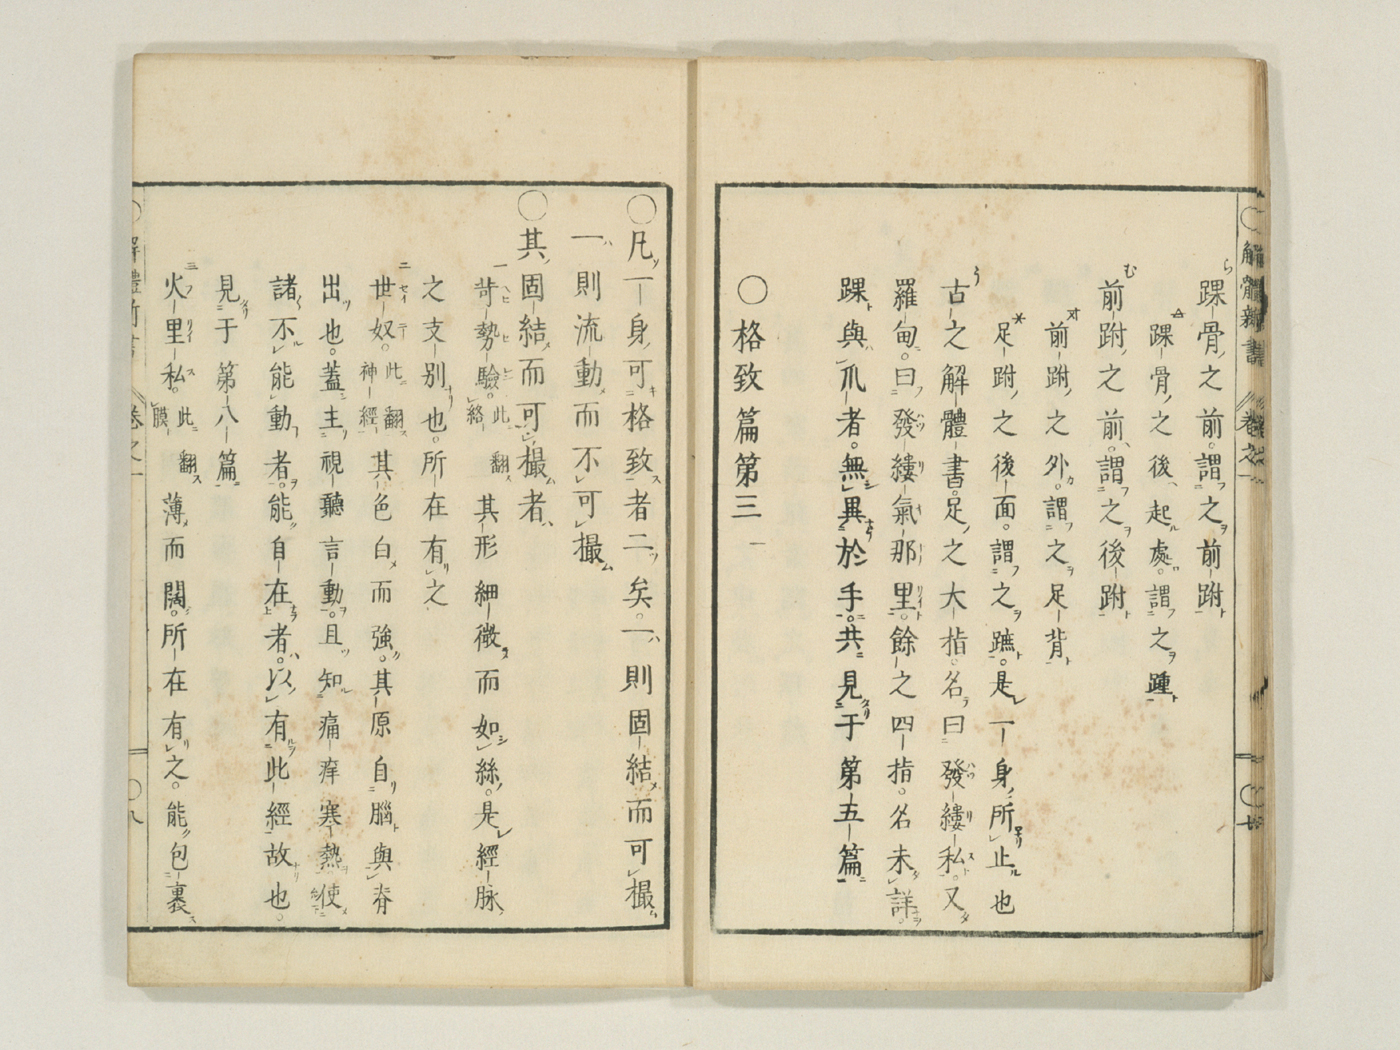 解體新書 卷之一 〇七
ら 踝骨之前。謂之前跗
踝骨之後起處。謂之踵
む 前跗之前。謂之後跗
前跗之外。謂之足背
足跗之後面。謂之蹠。是一身所止也
う 古之解體書。足之大指。名曰發縷私。又
羅甸。曰發縷氣那里。餘之四指。名未詳。
踝與爪者。無異於手。共見于第五篇
〇格致篇第三
〇凡一身可格致者二矣。一則固結而可撮
一則流動而不可撮
〇其固結而可撮者
一 苛勢驗。此翻絡 其形細微而如絲。是經脉
之支別也。所在有之
二 世奴。此翻神經 其色白而強。其原自腦與脊
出也。蓋主視聽言動。且知痛痒寒熱。使
諸不能動者。能自在者。以有此經故也。
見于第八篇
三 火里私。此翻膜 薄而闊。所在有之。能包裹
解體新書 卷之一 〇八